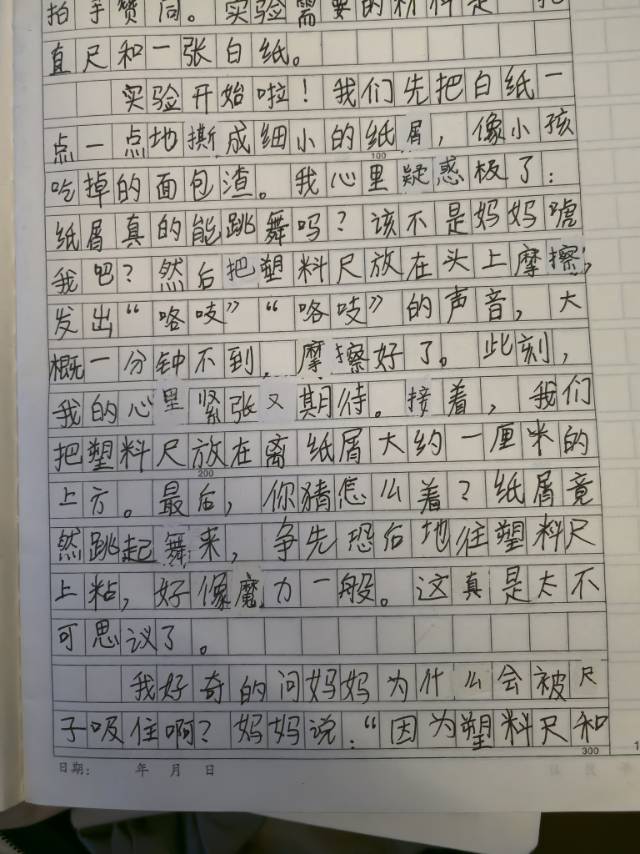 拍手赞同。实验需要的材料是一把
直尺和一张白纸。
实验开始啦！我们先把白纸一
点一点地撕成细小的纸屑，像小孩
吃掉的面包渣。我心里疑惑极了：
纸屑真的能跳舞吗？该不是妈妈唬
我吧？然后把塑料尺放在头上摩擦，
发出“咯吱”“咯吱”的声音，大
概一分钟不到，摩擦好了。此刻，
我的心里紧张又期待。接着，我们
把塑料尺放在离纸屑大约一厘米的
上方。最后，你猜怎么着？纸屑竟
然跳起舞来，争先恐后地往塑料尺
上粘，好像魔力一般。这真是太不
可思议了。
我好奇的问妈妈为什么会被尺
子吸住啊？妈妈说：“因为塑料尺和
100
200
300
日期： 年 月 日